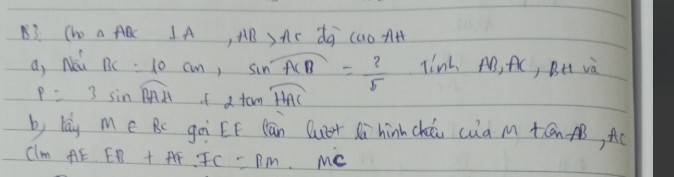 B3: Cho △ ABC ⊥ A , AB > AC đg cao AH
a, Nếu BC = 10 cm, sin ACB = 2/5 . Tính AB, AC, BH và
P = 3 sin BAH + 2 tan HAC
b, lấy M ∈ BC gọi EF lần lượt là hình chiếu của M trên AB, AC
C/m AE. EB + AF. FC = BM. MC